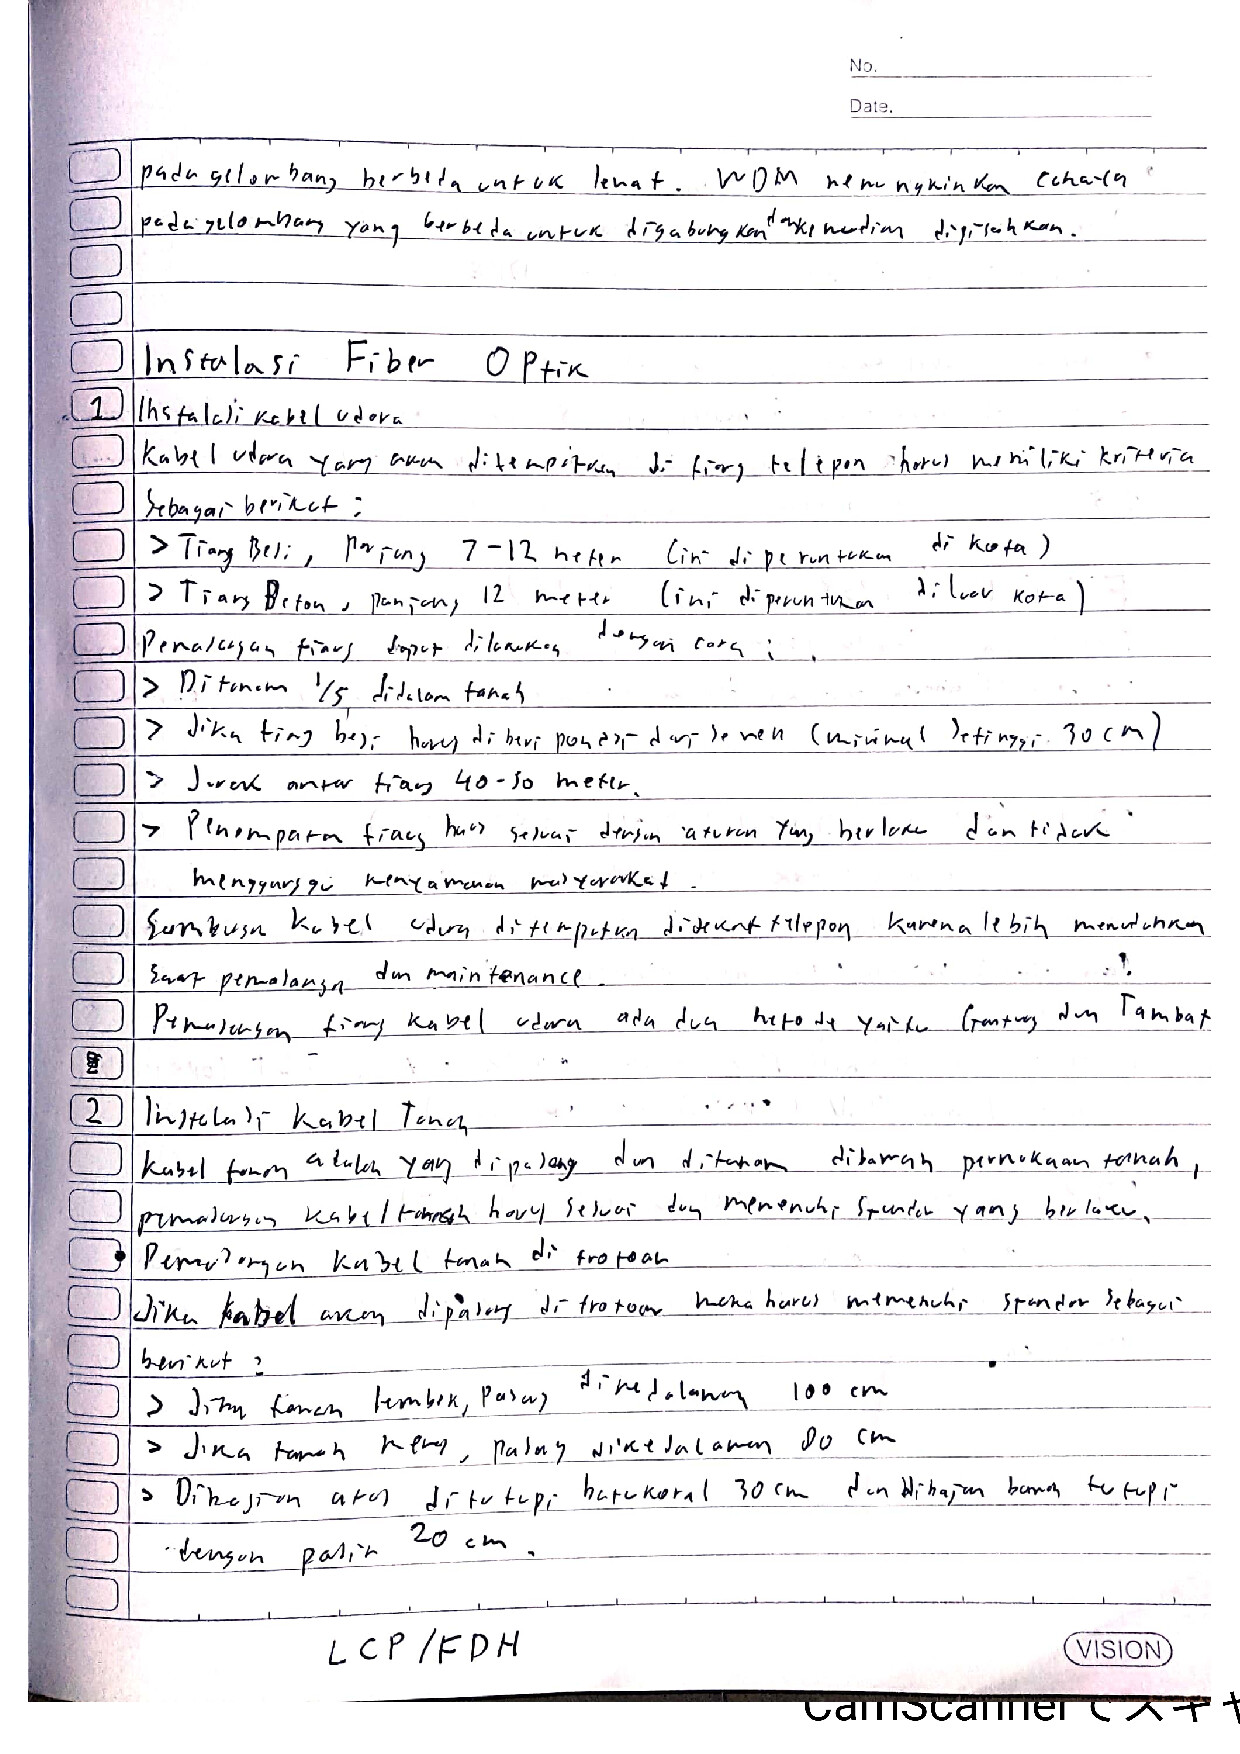 No.
Date.
pada gelombang berbeda untuk lewat. WDM memungkinkan cahaya
pada gelombang yang berbeda untuk digabungkan dan kemudian dipisahkan.
Instalasi Fiber Optik
1 Instalasi kabel udara
Kabel udara yang akan ditempatkan di tiang telepon harus memiliki kriteria
Sebagai berikut :
> Tiang Besi, Panjang 7-12 meter (ini diperuntukan di kota)
> Tiang Beton, panjang 12 meter (ini diperuntukan diluar kota)
Pemasangan tiang dapat dilakukan dengan cara :
> Ditanam 1/5 didalam tanah
> Jika tiang besi harus diberi pondasi dari semen (minimal setinggi 30 cm)
> Jarak antar tiang 40-50 meter.
> Penempatan tiang harus sesuai dengan aturan yang berlaku dan tidak
mengganggu kenyamanan masyarakat.
Sambungan kabel udara ditempatkan didekat telepon karena lebih memudahkan
saat pemasangan dan maintenance.
Pemasangan tiang kabel udara ada dua metode yaitu Gantung dan Tambat
2 Instalasi Kabel Tanah
Kabel tanah adalah yang dipasang dan ditanam dibawah permukaan tanah,
pemasangan kabel tanah harus sesuai dan memenuhi standar yang berlaku.
• Pemasangan kabel tanah di trotoar
Jika kabel akan dipasang di trotoar maka harus memenuhi standar sebagai
berikut :
> Jika tanah lembek, pasang dikedalaman 100 cm
> Jika tanah keras, pasang dikedalaman 80 cm
> Dibagian atas ditutupi batu koral 30 cm dan dibagian bawah tutupi
dengan pasir 20 cm.
LCP/FDH
VISION
CamScannerでスキャ